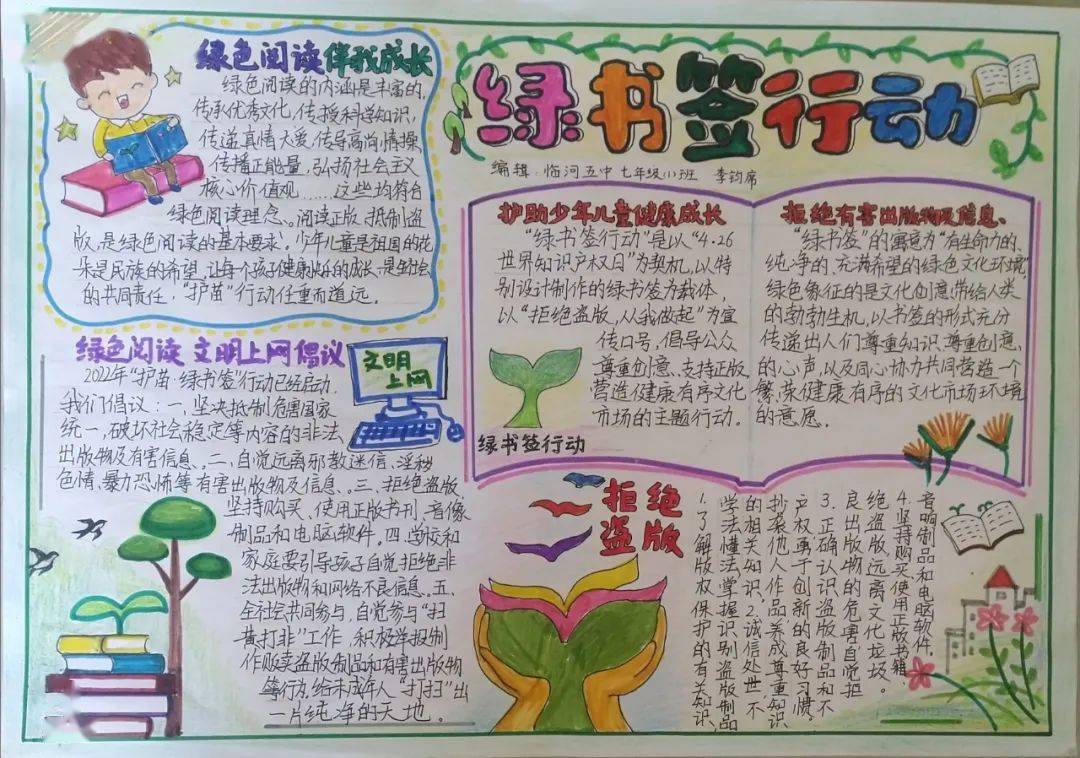 绿书签行动
编辑:临河五中 七年级(1)班 李钧席
绿色阅读伴我成长
绿色阅读的内涵是丰富的,
传承优秀文化,传授科学知识,
传递真情大爱,传导高尚情操,
传播正能量,弘扬社会主义
核心价值观……这些均符合
绿色阅读理念。阅读正版、抵制盗
版,是绿色阅读的基本要求。少年儿童是祖国的花
朵是民族的希望,让每个孩子健康快乐的成长,是全社会
的共同责任,“护苗”行动任重而道远。
绿色阅读 文明上网倡议
文明
上网
2022年“护苗·绿书签”行动已经启动.
我们倡议:一、坚决抵制危害国家
统一,破坏社会稳定等内容的非法
出版物及有害信息。二、自觉远离邪教迷信、淫秽
色情、暴力恐怖等有害出版物及信息、三、拒绝盗版
坚持购买、使用正版书刊,音像
制品和电脑软件。四、学校和
家庭要引导孩子自觉拒绝非
法出版物和网络不良信息。五、
全社会共同参与,自觉参与“扫
黄打非”工作,积极举报制
作贩卖盗版制品和有害出版物
等行为,给未成年人“打扫”出
一片纯净的天地。
护助少年儿童健康成长
“绿书签行动”是以“4.26
世界知识产权日”为契机,以特
别设计制作的绿书签为载体,
以“拒绝盗版,从我做起”为宣
传口号,倡导公众
尊重创意、支持正版
营造健康有序文化
市场的主题行动。
绿书签行动
拒绝有害出版物及信息、
“绿书签”的寓意为“有生命力的、
纯净的、充满希望的绿色文化环境”
绿色象征的是文化创意,带给人类
的勃勃生机,以书签的形式充分
传递出人们尊重知识、尊重创意、
的心声,以及同心协力共同营造一个
繁荣健康有序的文化市场环境
的意愿。
拒绝
盗版
1.了解版权保护的有关知识,
学法懂法,掌握识别盗版制品
的相关知识2.诚信处世,不
抄袭他人作品,养成尊重知识
产权,勇于创新的良好习惯。
3.正确认识盗版制品和不
良出版物的危害,自觉拒
绝盗版,远离文化垃圾。
4.坚持购买使用正版书籍,
音响制品和电脑软件.